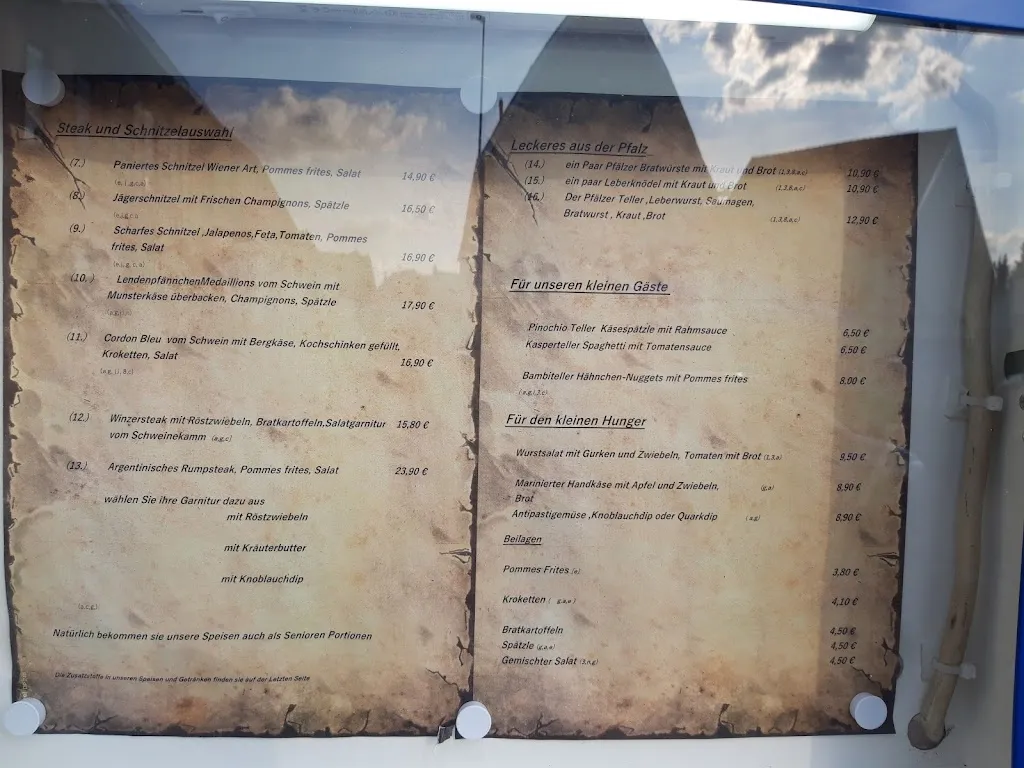 Steak und Schnitzelauswahl
(7.) Paniertes Schnitzel Wiener Art, Pommes frites, Salat 14,90 €
(8.) Jägerschnitzel mit Frischen Champignons, Spätzle 16,50 €
(9.) Scharfes Schnitzel ,Jalapenos,Feta,Tomaten, Pommes
frites, Salat 16,90 €
(10.) LendenpfännchenMedaillions vom Schwein mit
Munsterkäse überbacken, Champignons, Spätzle 17,90 €
(11.) Cordon Bleu vom Schwein mit Bergkäse, Kochschinken gefüllt,
Kroketten, Salat 16,90 €
(12.) Winzersteak mit Röstzwiebeln, Bratkartoffeln,Salatgarnitur 15,80 €
vom Schweinekamm (a,g,c)
(13.) Argentinisches Rumpsteak, Pommes frites, Salat 23,90 €
wählen Sie ihre Garnitur dazu aus
mit Röstzwiebeln
mit Kräuterbutter
mit Knoblauchdip
(a,c,g)
Natürlich bekommen sie unsere Speisen auch als Senioren Portionen
Die Zusatzstoffe in unseren Speisen und Getränken finden sie auf der Letzten Seite
Leckeres aus der Pfalz
(14.) ein Paar Pfälzer Bratwürste mit Kraut und Brot (1,3,8,a,c) 10,90 €
(15.) ein paar Leberknödel mit Kraut und Brot (1,3,8,a,c) 10,90 €
(16.) Der Pfälzer Teller ,Leberwurst, Saumagen,
Bratwurst , Kraut ,Brot (1,3,8,a,c) 12,90 €
Für unseren kleinen Gäste
Pinochio Teller Käsespätzle mit Rahmsauce 6,50 €
Kasperteller Spaghetti mit Tomatensauce 6,50 €
Bambiteller Hähnchen-Nuggets mit Pommes frites 8,00 €
Für den kleinen Hunger
Wurstsalat mit Gurken und Zwiebeln, Tomaten mit Brot (1,3,a) 9,50 €
Marinierter Handkäse mit Apfel und Zwiebeln, (g,a) 8,90 €
Brot
Antipastigemüse ,Knoblauchdip oder Quarkdip (a,g) 8,90 €
Beilagen
Pommes Frites 3,80 €
Kroketten 4,10 €
Bratkartoffeln 4,50 €
Spätzle (g,a,e) 4,50 €
Gemischter Salat 4,50 €